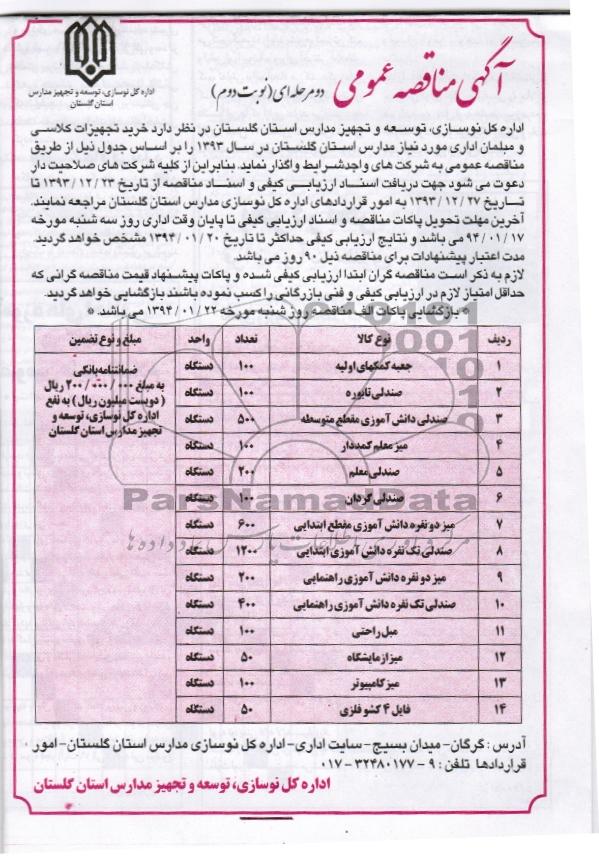 آگهی مناقصه عمومی دو مرحله ای (نوبت دوم)
اداره کل نوسازی، توسعه و تجهیز مدارس
استان گلستان
اداره کل نوسازی، توسعه و تجهیز مدارس استان گلستان در نظر دارد خرید تجهیزات کلاسی
و مبلمان اداری مورد نیاز مدارس استان گلستان در سال ۱۳۹۳ را بر اساس جدول ذیل از طریق
مناقصه عمومی به شرکت های واجد شرایط واگذار نماید. بنابراین از کلیه شرکت های صلاحیت دار
دعوت می شود جهت دریافت اسناد ارزیابی کیفی و اسناد مناقصه از تاریخ ۱۳۹۳/۱۲/۲۳ تا
تاریخ ۱۳۹۳/۱۲/۲۷ به امور قراردادهای اداره کل نوسازی مدارس استان گلستان مراجعه نمایند.
آخرین مهلت تحویل پاکات مناقصه و اسناد ارزیابی کیفی تا پایان وقت اداری روز سه شنبه مورخه
۹۴/۰۱/۱۷ می باشد و نتایج ارزیابی کیفی حداکثر تا تاریخ ۱۳۹۴/۰۱/۲۰ مشخص خواهد گردید.
مدت اعتبار پیشنهادات برای مناقصه ذیل ۹۰ روز می باشد.
لازم به ذکر است مناقصه گران ابتدا ارزیابی کیفی شده و پاکات پیشنهاد قیمت مناقصه گرانی که
حداقل امتیاز لازم در ارزیابی کیفی و فنی بازرگانی را کسب نموده باشند بازگشایی خواهد گردید.
* بازگشایی پاکات الف مناقصه روز شنبه مورخه ۱۳۹۴/۰۱/۲۲ می باشد. *
ردیف نوع کالا تعداد واحد مبلغ و نوع تضمین
۱ جعبه کمکهای اولیه ۱۰۰ دستگاه
۲ صندلی تابوره ۱۰۰ دستگاه
۳ صندلی دانش آموزی مقطع متوسطه ۵۰۰ دستگاه
۴ میز معلم کمددار ۱۰۰ دستگاه
۵ صندلی معلم ۲۰۰ دستگاه
۶ صندلی گردان ۱۰۰ دستگاه
۷ میز دو نفره دانش آموزی مقطع ابتدایی ۶۰۰ دستگاه
۸ صندلی تک نفره دانش آموزی ابتدایی ۱۲۰۰ دستگاه
۹ میز دو نفره دانش آموزی راهنمایی ۲۰۰ دستگاه
۱۰ صندلی تک نفره دانش آموزی راهنمایی ۴۰۰ دستگاه
۱۱ مبل راحتی ۱۰۰ دستگاه
۱۲ میز ازمایشگاه ۵۰ دستگاه
۱۳ میز کامپیوتر ۱۰۰ دستگاه
۱۴ فایل ۴ کشو فلزی ۵۰ دستگاه
ضمانتنامه بانکی
به مبلغ ۲۰۰/۰۰۰/۰۰۰ ریال
(دویست میلیون ریال) به نفع
اداره کل نوسازی، توسعه و
تجهیز مدارس استان گلستان
ParsNamadData
آدرس: گرگان- میدان بسیج- سایت اداری- اداره کل نوسازی مدارس استان گلستان- امور
قراردادها تلفن: ۹ - ۳۲۴۸۰۱۷۷-۰۱۷
اداره کل نوسازی، توسعه و تجهیز مدارس استان گلستان